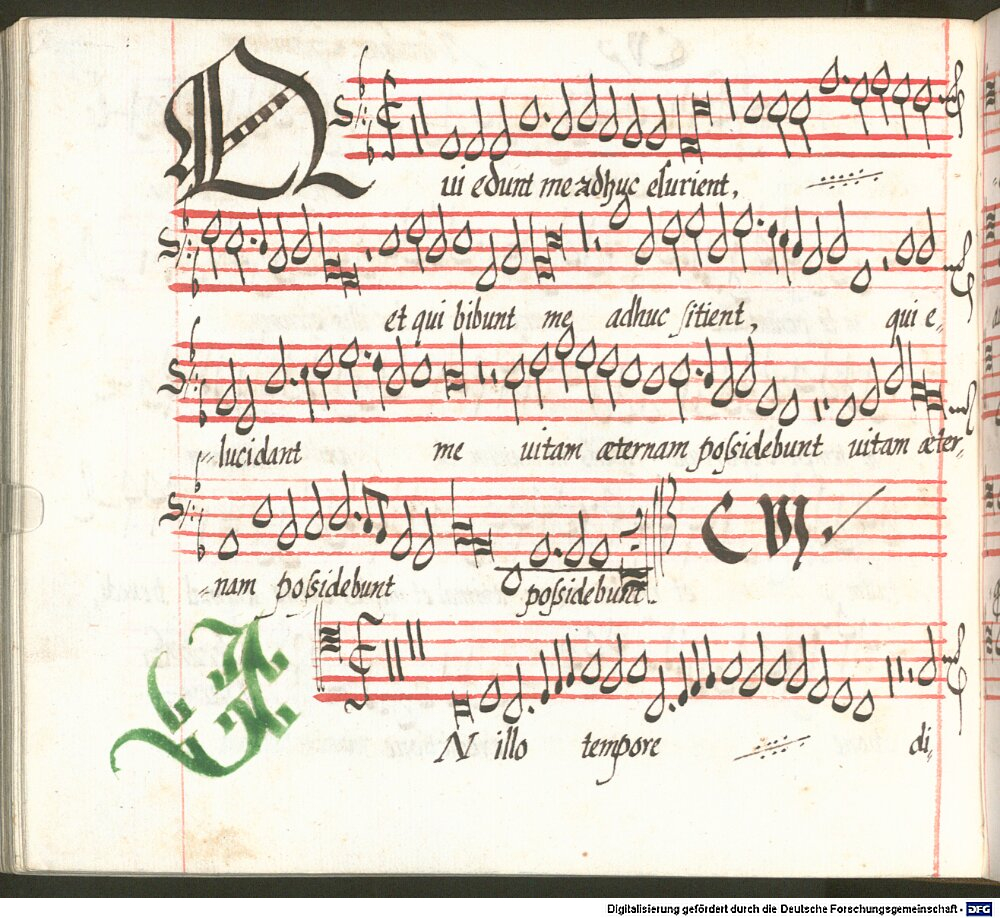 Qui edunt me adhuc esurient,
et qui bibunt me adhuc sitient, qui e-
-lucidant me uitam æternam possidebunt uitam æter-
-nam possidebunt possidebunt.
IN illo tempore di-
Digitalisierung gefördert durch die Deutsche Forschungsgemeinschaft - DFG